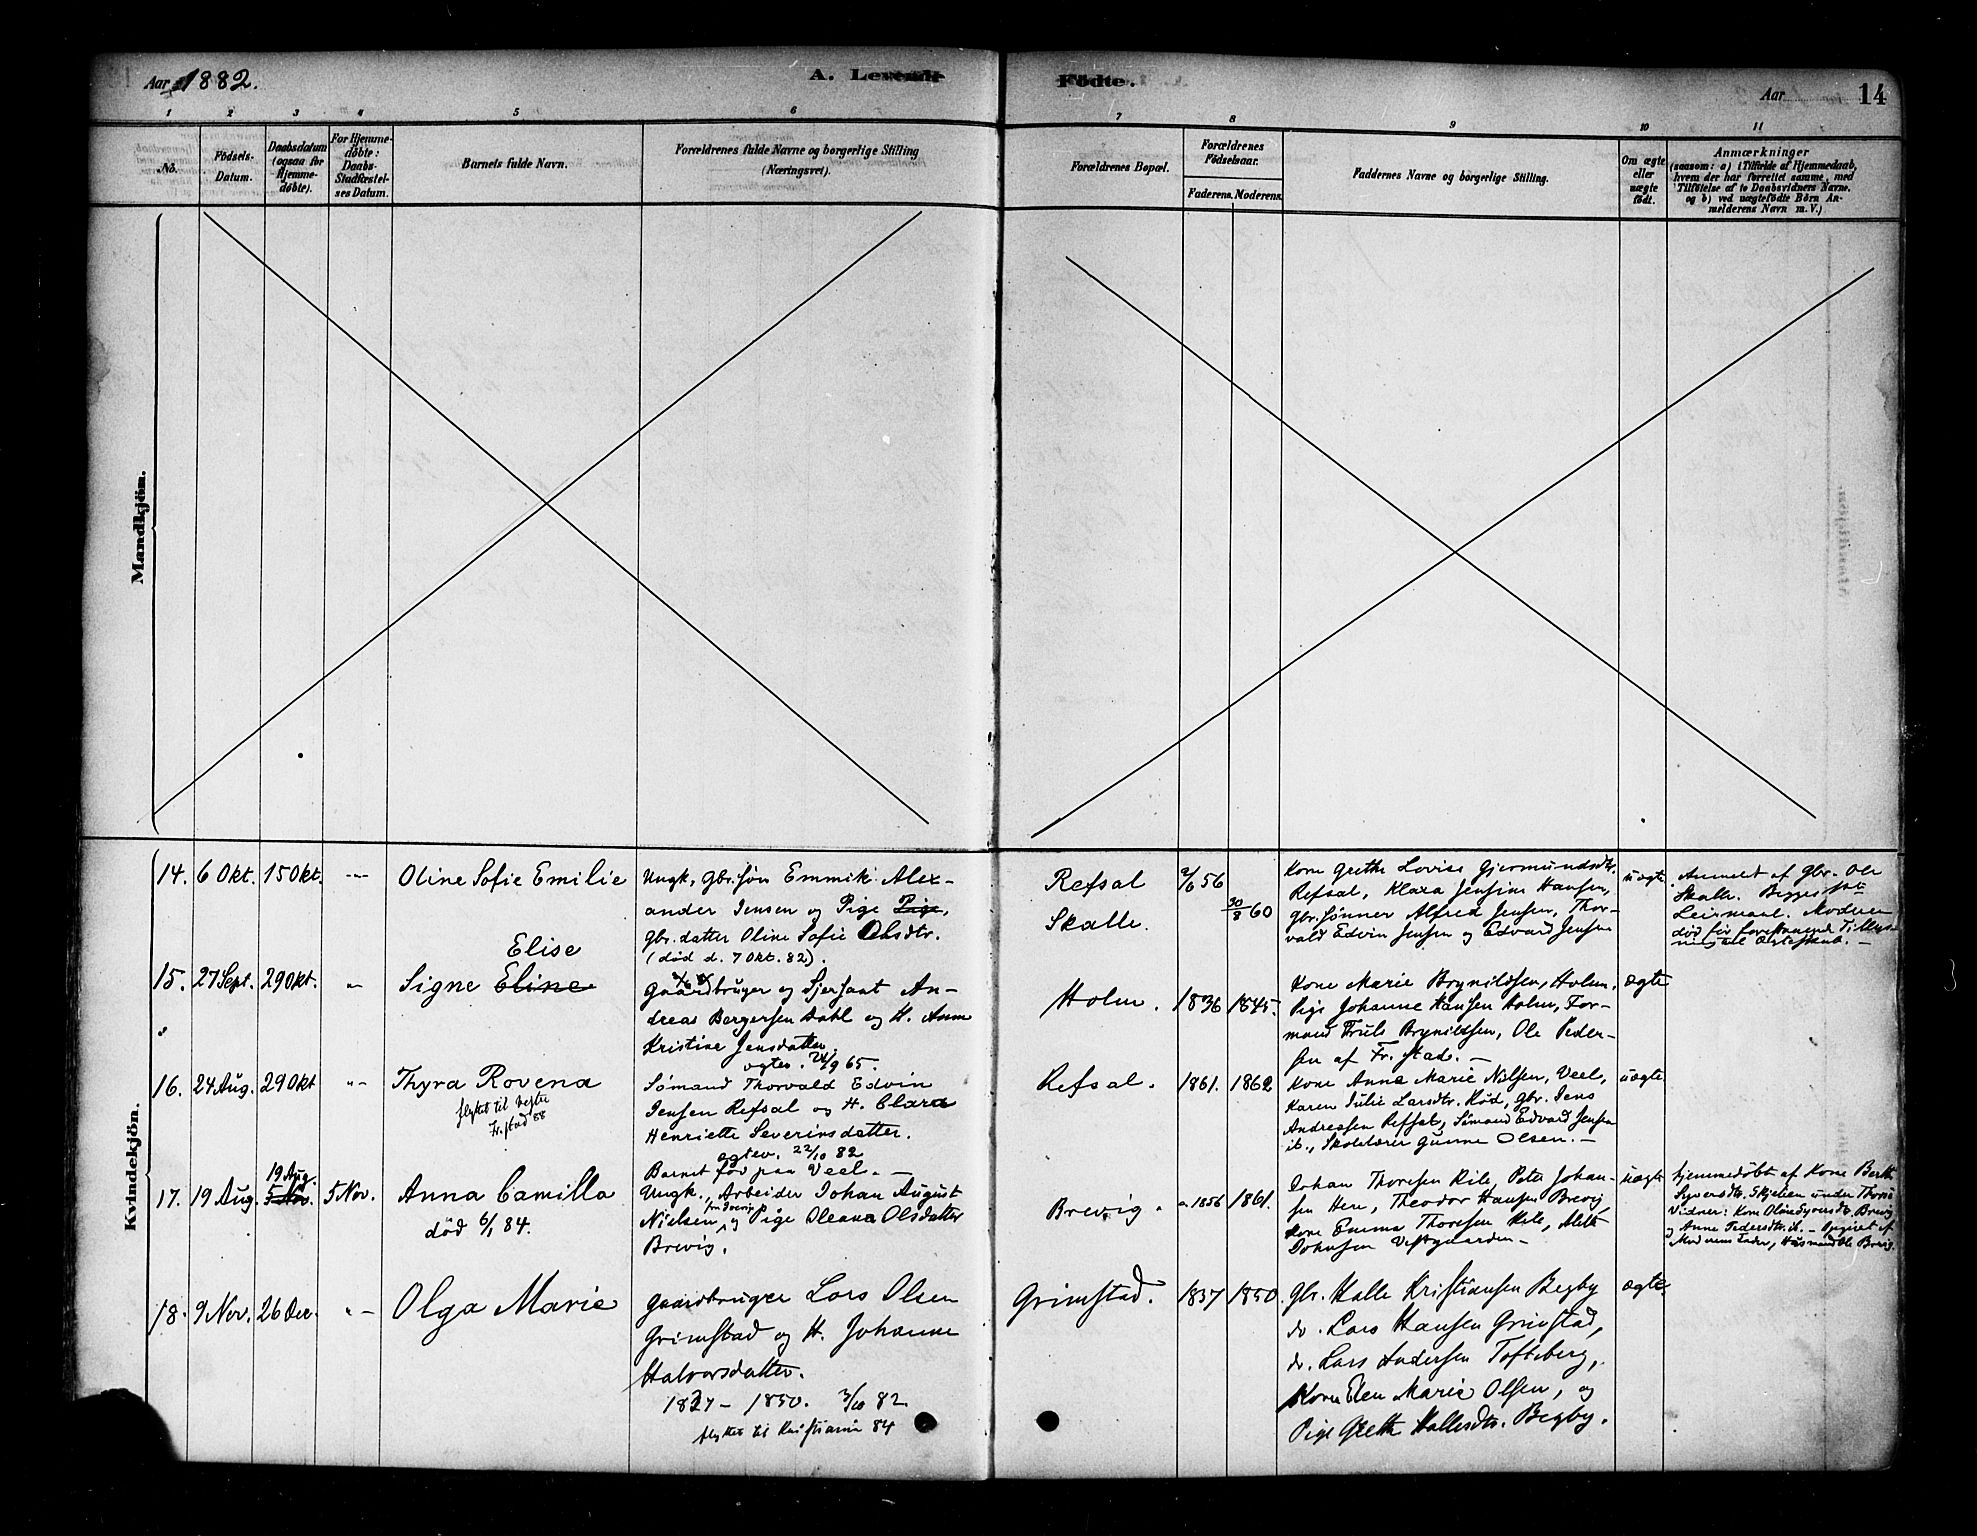 Aar 1882.
A. Levende
Födte.
Aar
14
1
2
3
4
5
6
7
8
9
10
11
No.
Födsels-
Datum.
Daabsdatum
(ogsaa for
Hjemme-
döbte).
For Hjemme-
döbte:
Daabs-
Stadfæstel-
ses Datum.
Barnets fulde Navn.
Forældrenes fulde Navne og borgerlige Stilling
(Næringsvei).
Forældrenes Bopæl.
Forældrenes
Födselsaar.
Faderens.
Moderens.
Faddernes Navne og borgerlige Stilling.
Om ægte
eller
uægte
födt.
Anmærkninger
(saasom: a) i Tilfælde af Hjemmedaab,
hvem der har forrettet samme, med
Tilföielse af to Daabsvidners Navne.
og b) ved uægtefödte Börn An-
melderens Navn m. V.)
Mandkjön.
Kvindekjön.
14.
6 Okt.
15 Okt.
Oline Sofie Emilie
Ungk. Gbr.søn Emmik Alex-
ander Jensen og Pige Pige,
Gbr. datter Oline Sofie Olsdtr.
(død d. 7 Okt. 82).
Refsal
Skalle.
2/6 56
30/8 60
Kone Grethe Lovise Gjermundsdtr.
Refsal, Klara Jensine Hansen,
Gbr.sønner Alfred Jensen, Thor-
vald Edvin Jensen og Edvard Jensen
uægte
Anmeldt af Gbr. Ole
Skalle. Begges 1ste
Leiermaal. Moderen
død før
15.
27 Sept.
29 Okt.
Elise
Signe Eline
Gaardbruger og Sjersant An-
dreas Borgersen Dahl og H. Anne
Kristine Jensdatter.
Holm.
1836
1845.
Kone Marie Brynildsen, Holm,
Pige Johanne Hansen Holm, For-
mand Truls Brynildsen, Ole Peder-
sen af Fr.stad. –
ægte
16.
24 Aug.
29 Okt
Thyra Rovena
flyttet til Vestre
Fr.stad 88
Sømand Thorvald Edvin
Jensen Refsal og H. Clara
Henriette Severinsdatter.
ægtev. 22/10 82
Barnet føv paa Veel. –
Refsal.
1861.
1862
Kone Anne Marie Nilsen, Veel,
Karen Julie Larsdtr. Rød, Gbr. Jens
Andreasen Refsal, Sømand Edvard Jensen
ib., Skolelærer Gunne Olsen. –
uægte
17.
19 Aug.
19 Aug.
5 Nov.
5 Nov.
Anna Camilla
død 6/1 84.
Ungk., Arbeider Johan August
Nielsen og Pige Oleana Olsdatter
Brevig.
Brevig.
1856
1861.
Johan Thoresen Kile, Peter Johan-
sen Here, Theodor Hansen Brevig
Kone Emma Thoresen Kile,
Johnsen Vestgaarden –
uægte
Hjemmedøbt af Kone Berthe
Syversdtr. Skjelien under Thorsø
Vidner: Kone Oline Syversdtr. Brevig
og Anne Pedersdtr. – Opgivet af
Moderens Fader, Husmand Ole Brevig.
18.
9 Nov.
26 Dec.
Olga Marie
Gaardbruger Lars Olsen
Grimstad og H. Johanne
Halvorsdatter.
1837 – 1850. 3/10 82.
flyttet til Kristiania 84
Grimstad.
1837
1850.
Gbr. Halle Kristiansen Begby
do. Lars Hansen Grimstad,
do. Lars Andersen Tofteberg,
Kone Elen Marie Olsen, og
Pige Grethe Hallesdtr. Begby.
ægte